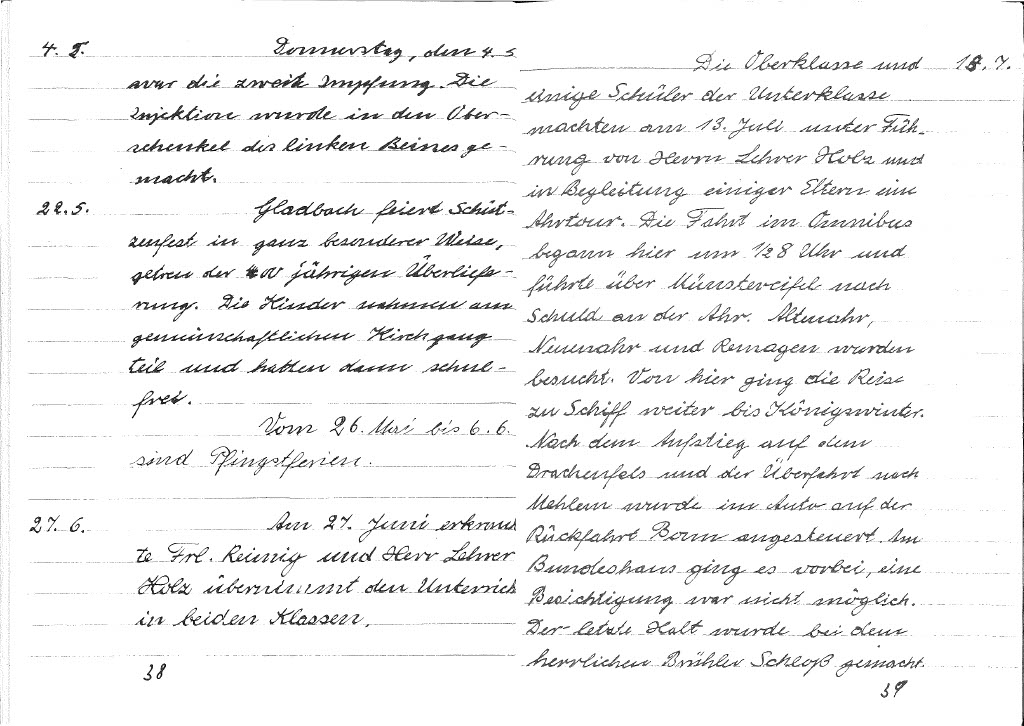 4. 5. Donnerstag, den 4. 5
war die zweite Impfung. Die
Injektion wurde in den Ober-
schenkel des linken Beines ge-
macht.
22.5. Gladbach feiert Schüt-
zenfest in ganz besonderer Weise,
getreu der 400 jährigen Überliefe-
rung. Die Kinder nahmen am
gemeinschaftlichen Kirchgang
teil und hatten dann schul-
frei.
Vom 26. Mai bis 6. 6.
sind Pfingstferien.
27. 6. Am 27. Juni erkrank
te Frl. Reimig und Herr Lehrer
Holz übernimmt den Unterrich
in beiden Klassen.
38
Die Oberklasse und 13. 7.
einige Schüler der Unterklasse
machten am 13. Juli unter Füh-
rung von Herrn Lehrer Holz und
in Begleitung einiger Eltern eine
Ahrtour. Die Fahrt im Omnibus
begann hier um 1/2 8 Uhr und
führte über Münstereifel nach
Schuld an der Ahr. Altenahr,
Neuenahr und Remagen wurden
besucht. Von hier ging die Reise
zu Schiff weiter bis Königswinter.
Nach dem Aufstieg auf dem
Drachenfels und der Überfahrt nach
Mehlem wurde im Auto auf der
Rückfahrt Bonn angesteuert. Am
Bundeshaus ging es vorbei, eine
Besichtigung war nicht möglich.
Der letzte Halt wurde bei dem
herrlichen Brühler Schloß gemacht.
39